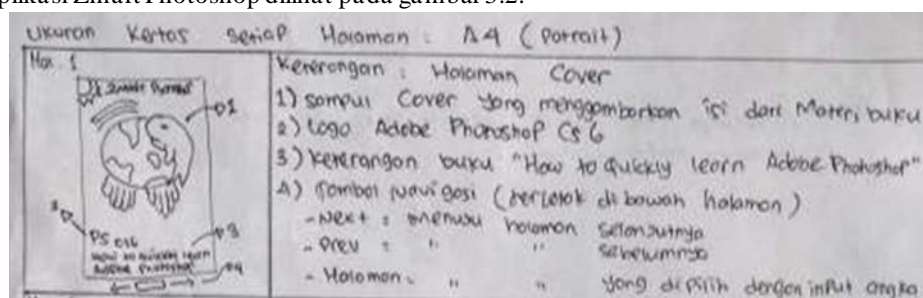 plikasi Zmart Photoshop dilihat pada gambar 3.2.
Ukuran Kertas setiap Halaman : A4 (Potrait)
Hal. 1
Keterangan : Halaman Cover
1) sampul Cover yang menggambarkan isi dari Materi buku
2) Logo Adobe Photoshop CS 6
3) keterangan buku "How to Quickly learn Adobe Photoshop"
4) Tombol Navigasi (terletak di bawah halaman)
- Next : menuju halaman selanjutnya
- Prev : " " sebelumnya
- Halaman : " " yang dipilih dengan input angka
1
2
3
4